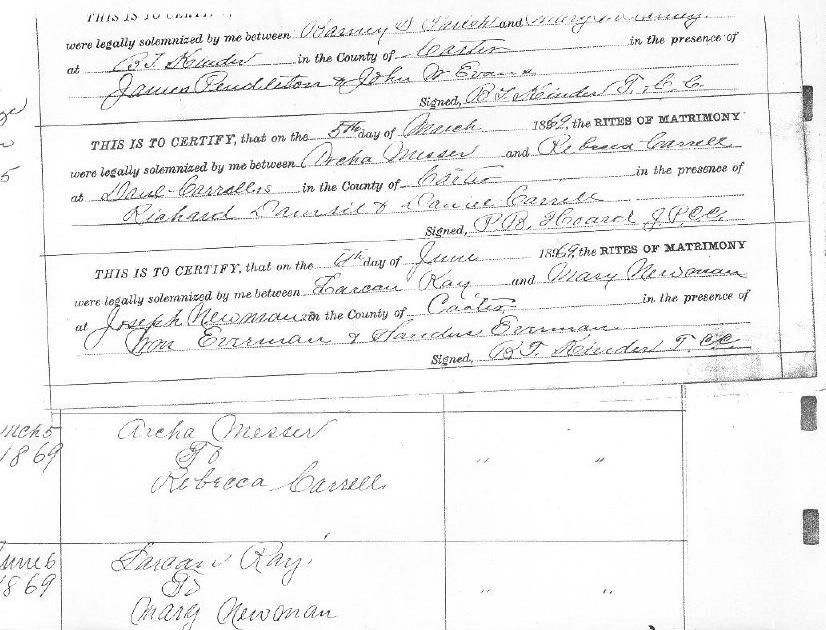 THIS IS TO CERTIFY,
were legally solemnized by me between Harney and Mary
at B.T. Kinder in the County of Carter in the presence of
James Pendleton & John W Evans
Signed, B T Kinder T. C. C.
THIS IS TO CERTIFY, that on the 5th day of March 1869, the RITES OF MATRIMONY
were legally solemnized by me between Archa Messer and Rebecca Carrell
at Danl Carrolls in the County of Carter in the presence of
Richard & Daniel Carrell
Signed, P.B. Hoard J.P.C.C.
THIS IS TO CERTIFY, that on the 6th day of June 1869, the RITES OF MATRIMONY
were legally solemnized by me between Farcan Ray and Mary Newman
at Joseph Newmans in the County of Carter in the presence of
Wm Everman & Sanders Everman
Signed, B.T. Kinder T. C.C.
5
Mch 5 Archa Messer
1869 To
Rebecca Carrell " "
June 6 Farcan Ray
1869 To
Mary Newman " "